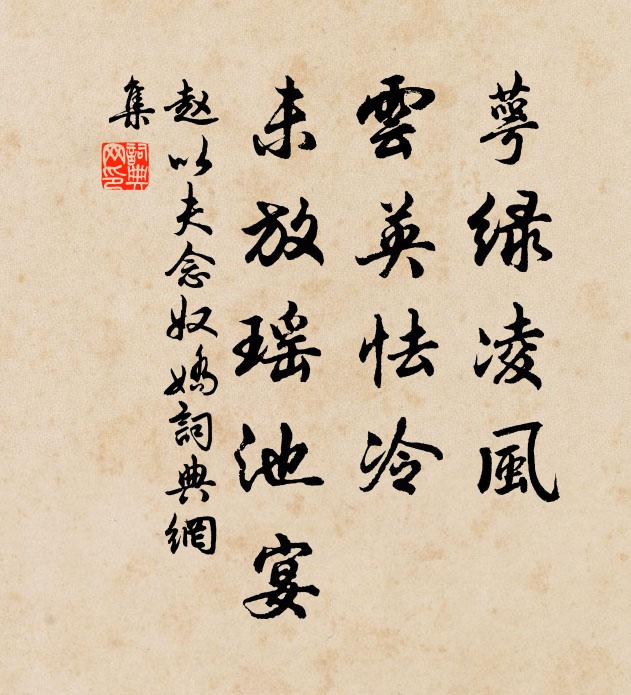 萼緑凌風
雲英怯冷
未放瑶池宴
趙以夫念奴嬌詞典網
集
詞典
网印